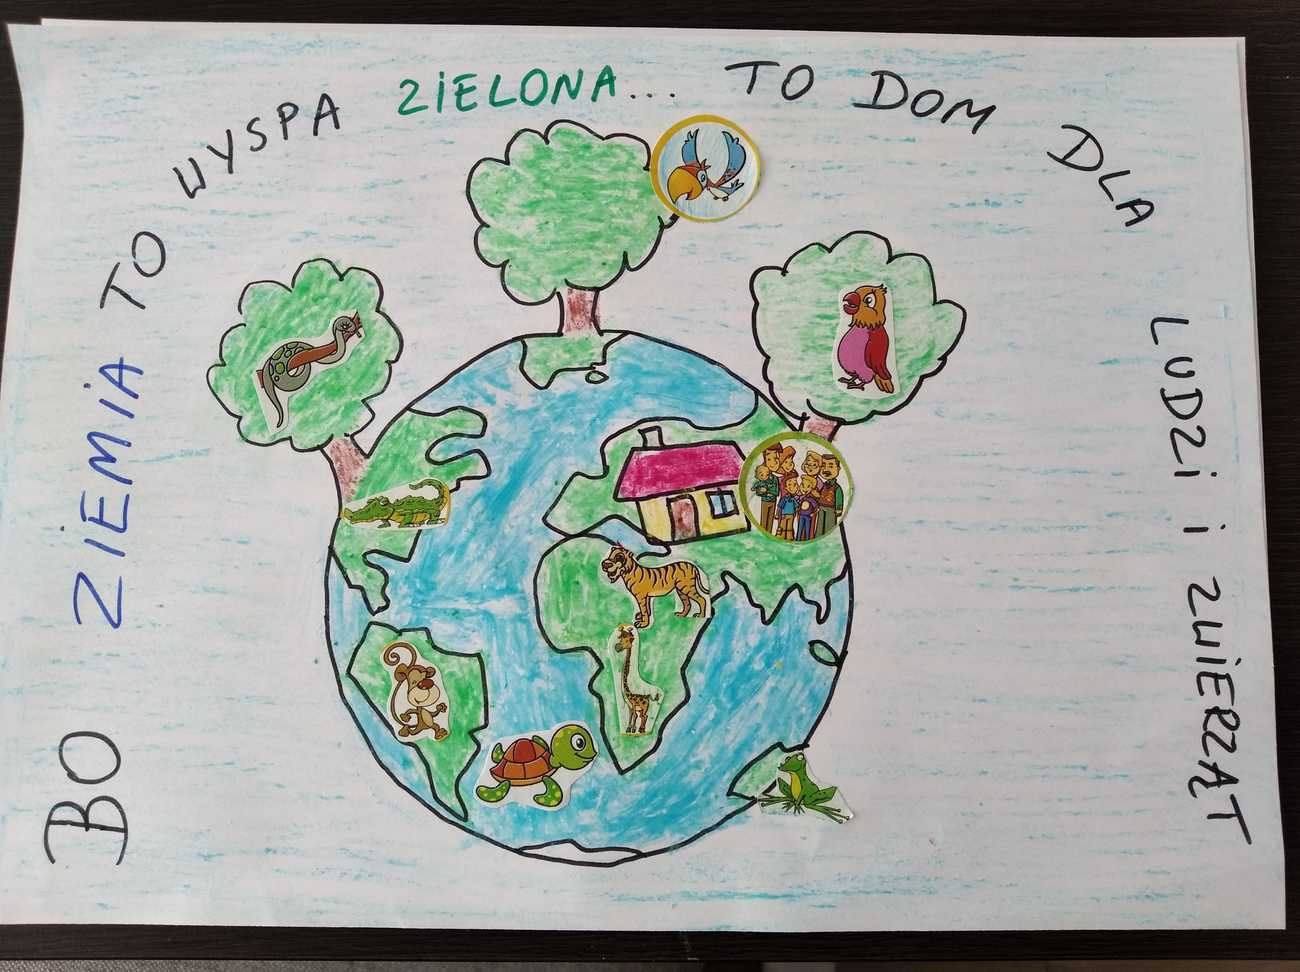 BO ZIEMIA TO WYSPA ZIELONA... TO DOM DLA LUDZI I ZWIERZĄT